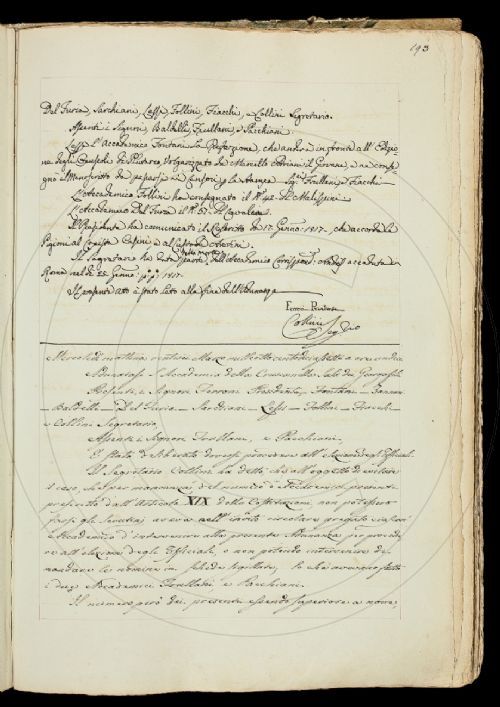 193
Del Furia, Sarchiani, Lessi, Follini, Fiacchi, e Collini Segretario.
Assenti i Signori, Baldelli, Frullani, e Pacchiani.
Lesse l'Accademico Fontani la Prefazione, che andrà in fronte all'Edizio
ne degli Opuscoli di Plutarco, Volgarizzati da Marcello Adriani il Giovane, e ne conse
gnò il Manoscritto da passarsi ai Censori per la stampa. Sigri Frullani, e Fiacchi
L'Accademico Follini ha consegnato il
L'Accademico Del Furia il
Il Presidente ha comunicato il Rescritto de' 17. Genn. 1817. che accorda la
al
Il Segretario ha data parte della morte dell'Accademico Corrispond.
Roma nel dì 22. Genn. 1817.
Il presente atto è stato letto alla fine dell'Adunanza
Ferroni Presidente
Collini Segrio
Mercoledì mattina Marzo mille ottocento diciassette a ore undici
Adunatasi l'Accademia della Crusca nelle Sale dei Georgofili
Presenti i Signori Ferroni Presidente, Fontani
Baldelli Del Furia Sarchiani Lessi Follini Fiacchi
e Collini Segretario
Assenti i Signori Frullani, e Pacchiani.
È stato deliberato doversi procedere all'elezione degli Ufficiali.
Il Segretario Collini ha detto che all'oggetto di evitare
il caso, che per mancanza del numero d'Accademici presenti
prescritto dall'Articolo XIX della Costituzione non potessero
farsi gli Scrutinj aveva nell'invito circolare pregato ciascun
Accademico d'intervenire alla presente Adunanza per proceder
re all'elezione degli Ufficiali, e non potendo intervenire di
mandare le nomine in schede sigillate, lo che avevano fatto
i due Accademici Frullani e Pacchiani.
Il numero però dei presenti essendo superiore a nove,